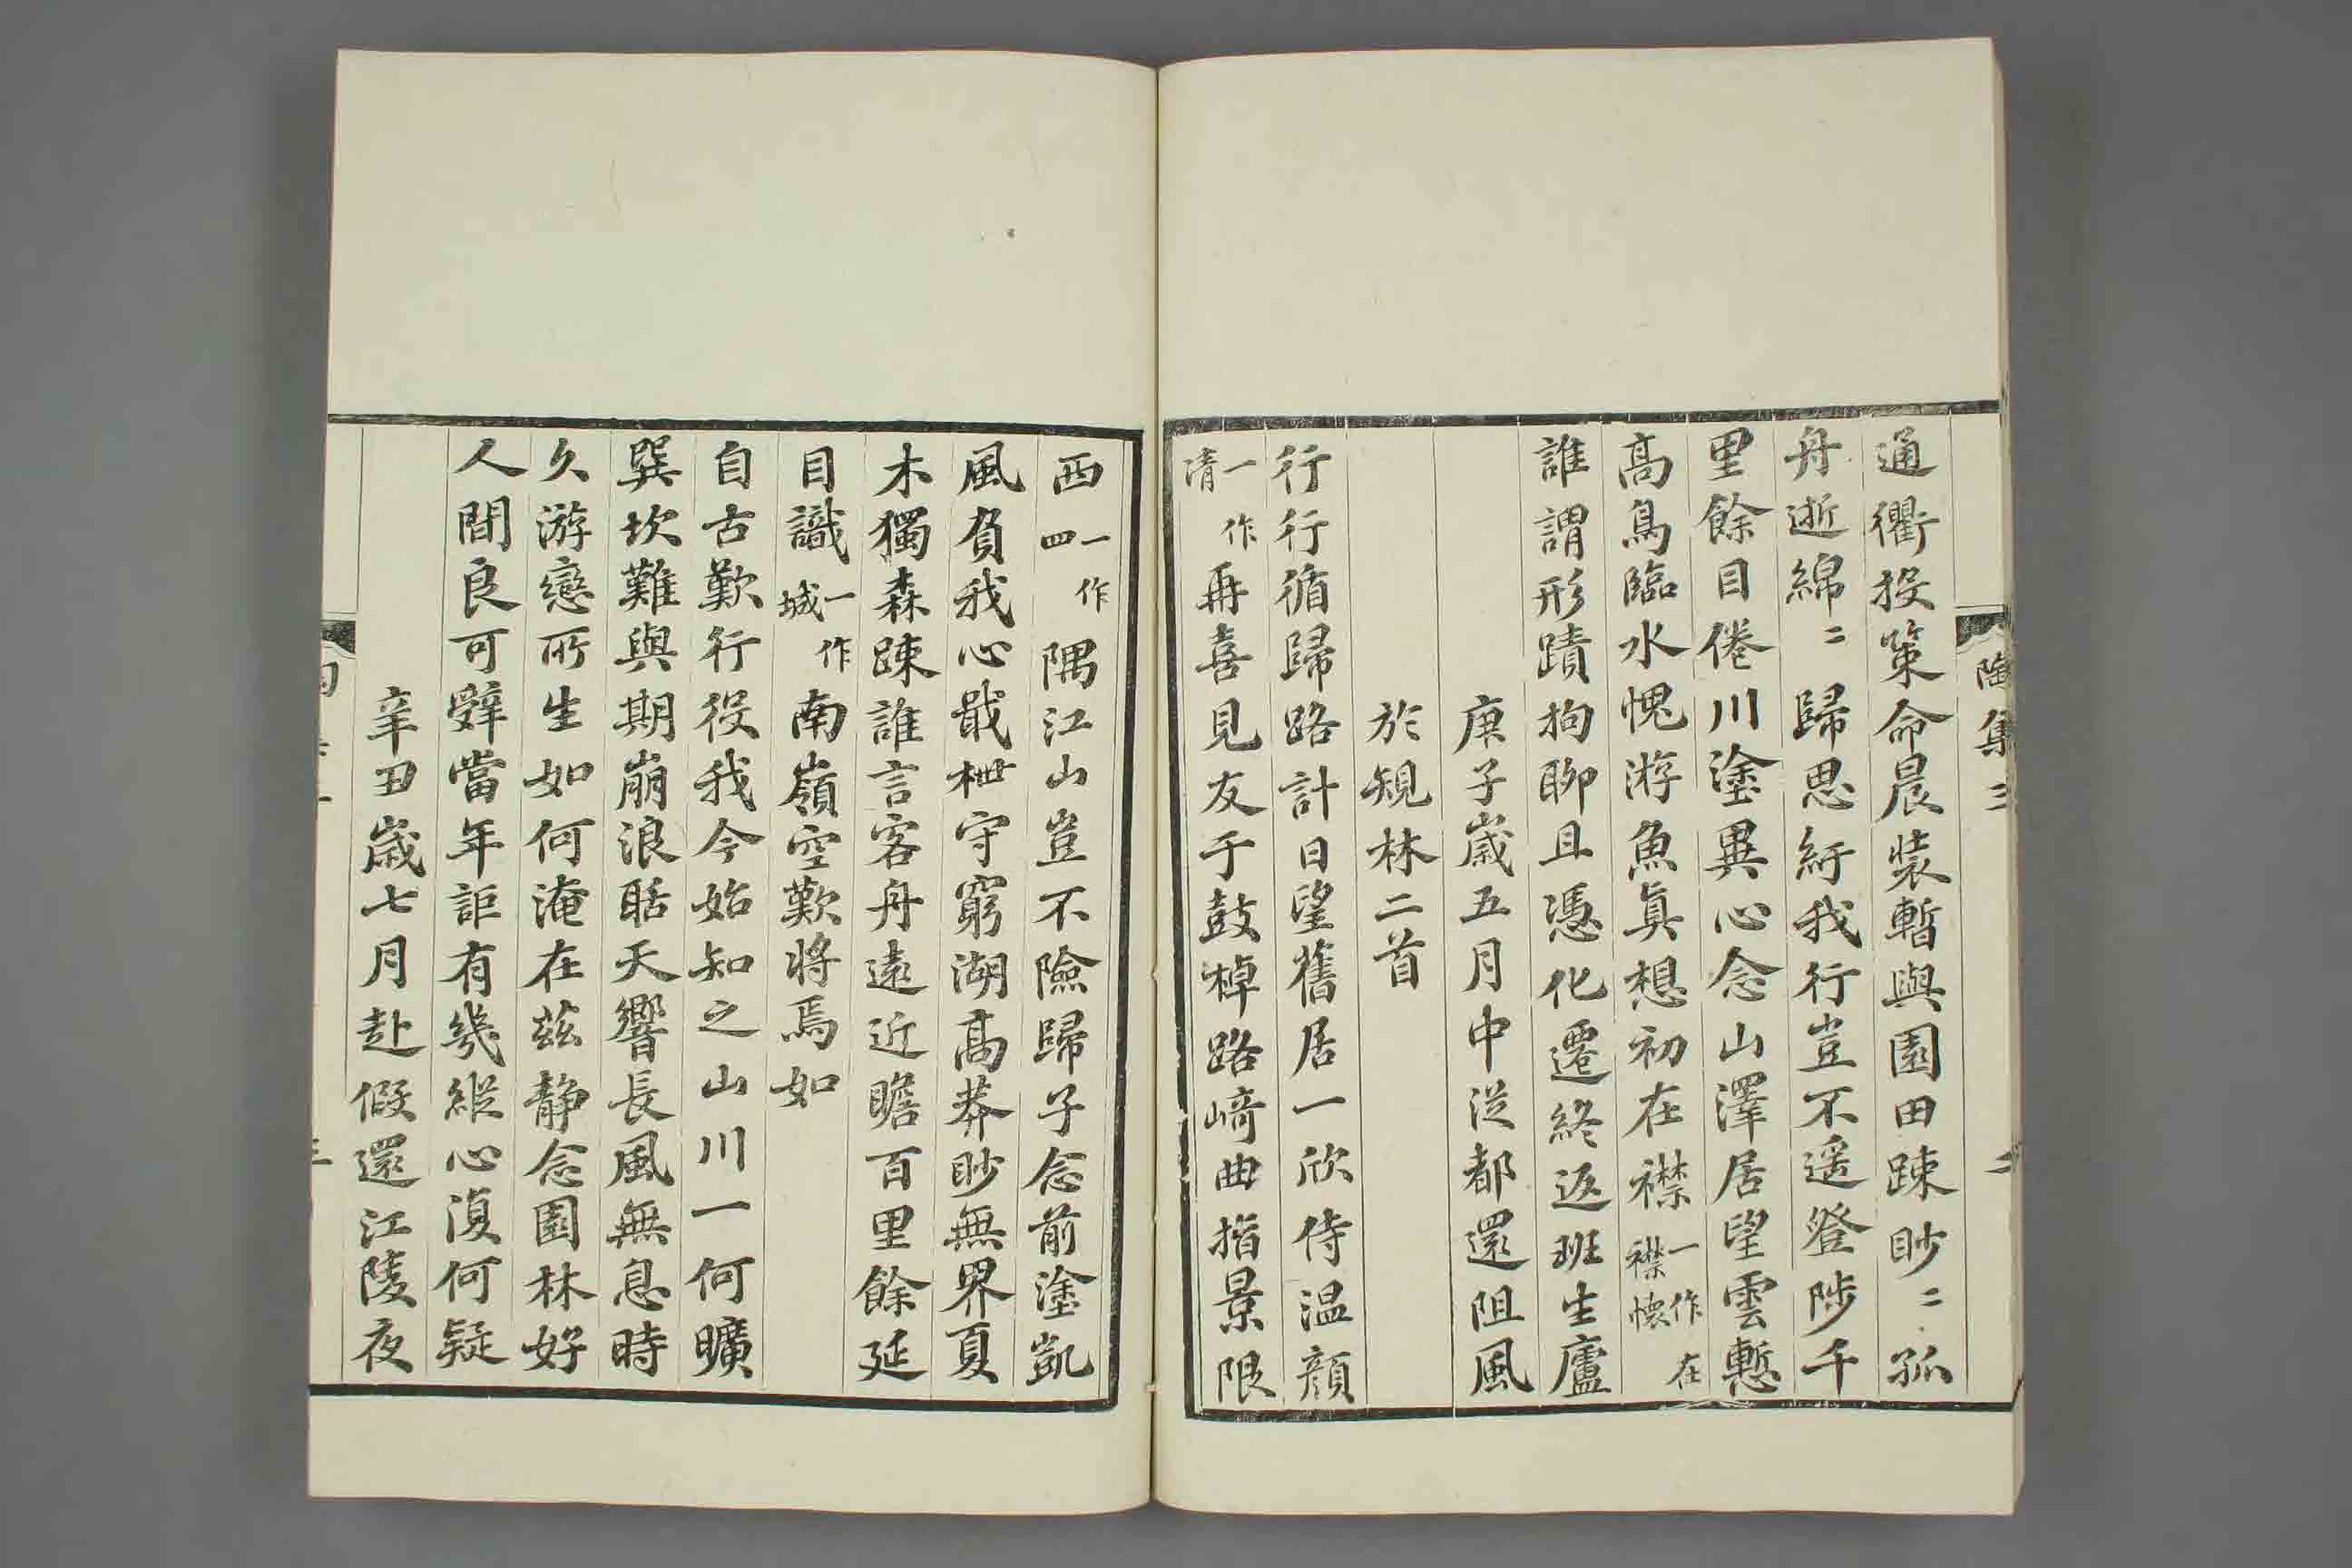 陶集三
二
通衢投策命晨裝暫與園田踈眇〻孤
舟逝綿〻歸思紆我行豈不遥登陟千
里餘目倦川塗異心念山澤居望雲慙
高鳥臨水愧游魚眞想初在襟一作在襟懷
誰謂形蹟拘聊且憑化遷終返班生廬
庚子歲五月中從都還阻風
於規林二首
行行循歸路計日望舊居一欣侍温顔
一作清再喜見友于鼓棹路崎曲指景限
西一作四隅江山豈不險歸子念前塗凱
風負我心戢枻守窮湖高莽眇無界夏
木獨森踈誰言客舟遠近瞻百里餘延
目識一作城南嶺空歎將焉如
自古歎行役我今始知之山川一何曠
巽坎難與期崩浪聒天響長風無息時
久游戀所生如何淹在兹静念園林好
人間良可辤當年詎有幾縱心復何疑
辛丑歲七月赴假還江陵夜